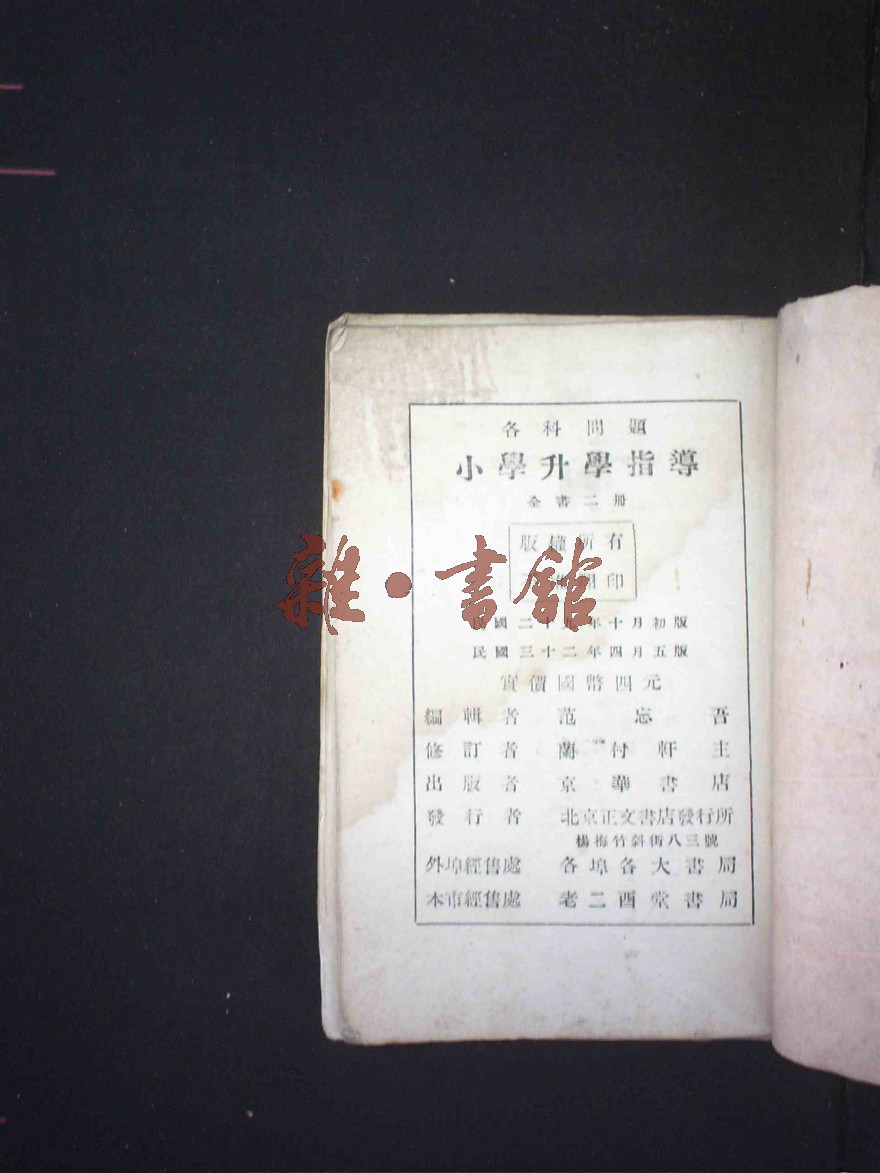 各科問題
小學升學指導
全書二册
版權所有
印
雜·書館
民國二十九年十月初版
民國三十二年四月五版
實價國幣四元
編輯者 范忘吾
修訂者 蘭村軒主
出版者 京華書店
發行者 北京正文書店發行所
楊梅竹斜街八三號
外埠經售處 各埠各大書局
本市經售處 老二酉堂書局